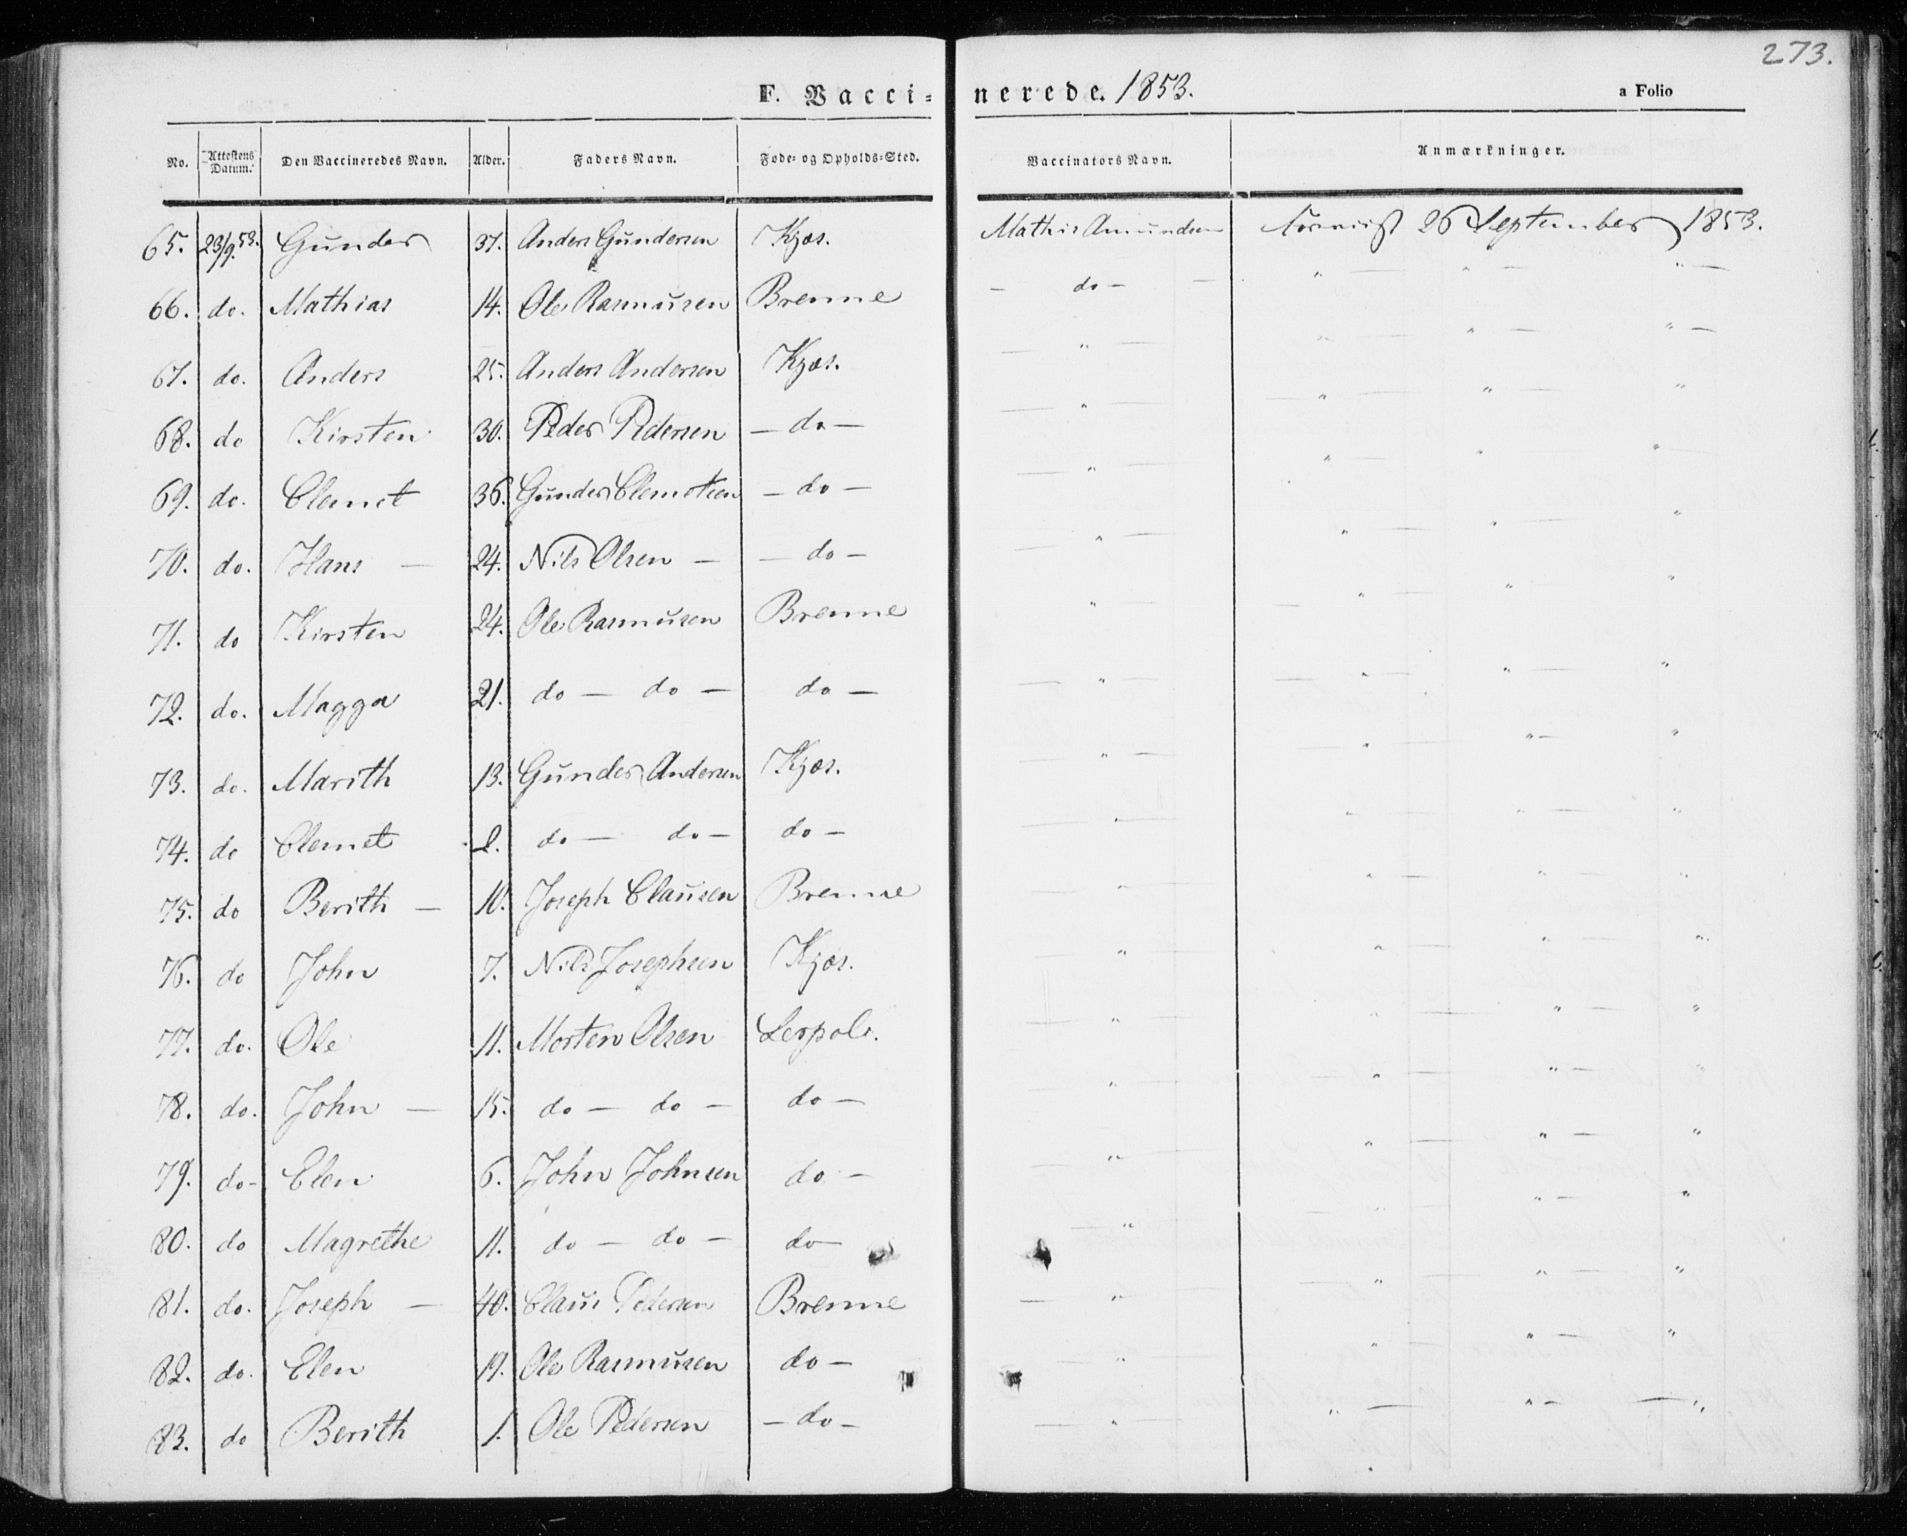 273.
F. Vacci-nerede. 1853. a Folio
No. Attestens Datum. Den Vaccineredes Navn. Alder. Faders Navn. Føde- og Opholds-Sted. Vaccinators Navn. Anmærkninger.
65. 23/9.53. Gunder 37. Anders Gundersen Kjæs. Mathis Amundsen 26 September 1853.
66. do. Mathias 14. Ole Rasmusen Brenne — do — " — " — " —
67. do. Anders 25. Anders Andersen Kjæs. — " — " — " — " —
68. do Kirsten 30. Peder Pedersen — do — — " — " — " — "
69. do. Clemet 36. Gunder Clemetsen — do — — " — " — " — "
70. do. Hans — 24. Nils Olsen — — do — — " — " — " — "
71. do Kirsten 24. Ole Rasmusen Brenne " — " — " — "
72. do. Magga 21. do — do — do — — " — " — " — "
73. do. Marith 13. Gunder Andersen Kjæs. — " — " — " — "
74. do Clemet 2. do — do — do — — " — " — " — "
75. do Berith — 10. Joseph Clausen Brenne — " — " — " — "
76. do John 7. Nils Josephsen Kjæs. " — " — " — "
77. do. Ole 11. Morten Olsen Lerpol. " — " — " — "
78. do. John — 15. do — do — do — " — " — " — "
79. do — Elen 6. John Johnsen do — — " — " — " — "
80. do Magrethe 11. do — do — do — — " — " — " — "
81. do. Joseph — 40. Claus Pedersen Brenne — " — " — " — "
82. do. Elen 19. Ole Rasmusen do — " — " — " — "
83. do Berith 1. Ole Pedersen — do — — " — " — " — "